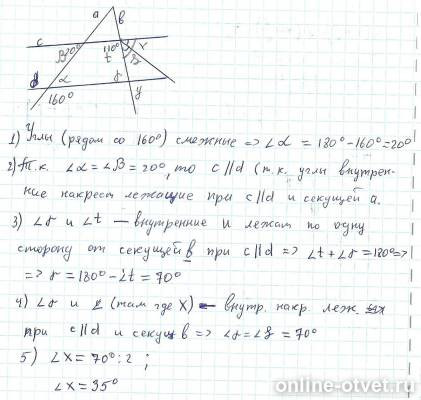 a
в
c
β 20°
110°
t
x
d
α
γ
y
160°
1) Углы (рядом со 160°) смежные => ∠α = 180°-160°=20°
2) Т.к. ∠α = ∠β = 20°, то c||d (т.к. углы внутрен-
ние накрест лежащие при c||d и секущей a.
3) ∠γ и ∠t — внутренние и лежат по одну
сторону от секущей в при c||d => ∠t+∠γ=180° =>
=> γ = 180° - ∠t = 70°
4) ∠γ и ∠ (там где x) - внутр. накр. леж.
при c||d и секущ в => ∠γ = ∠ = 70°
5) ∠x = 70° : 2 ;
∠x = 35°
online-otvet.ru